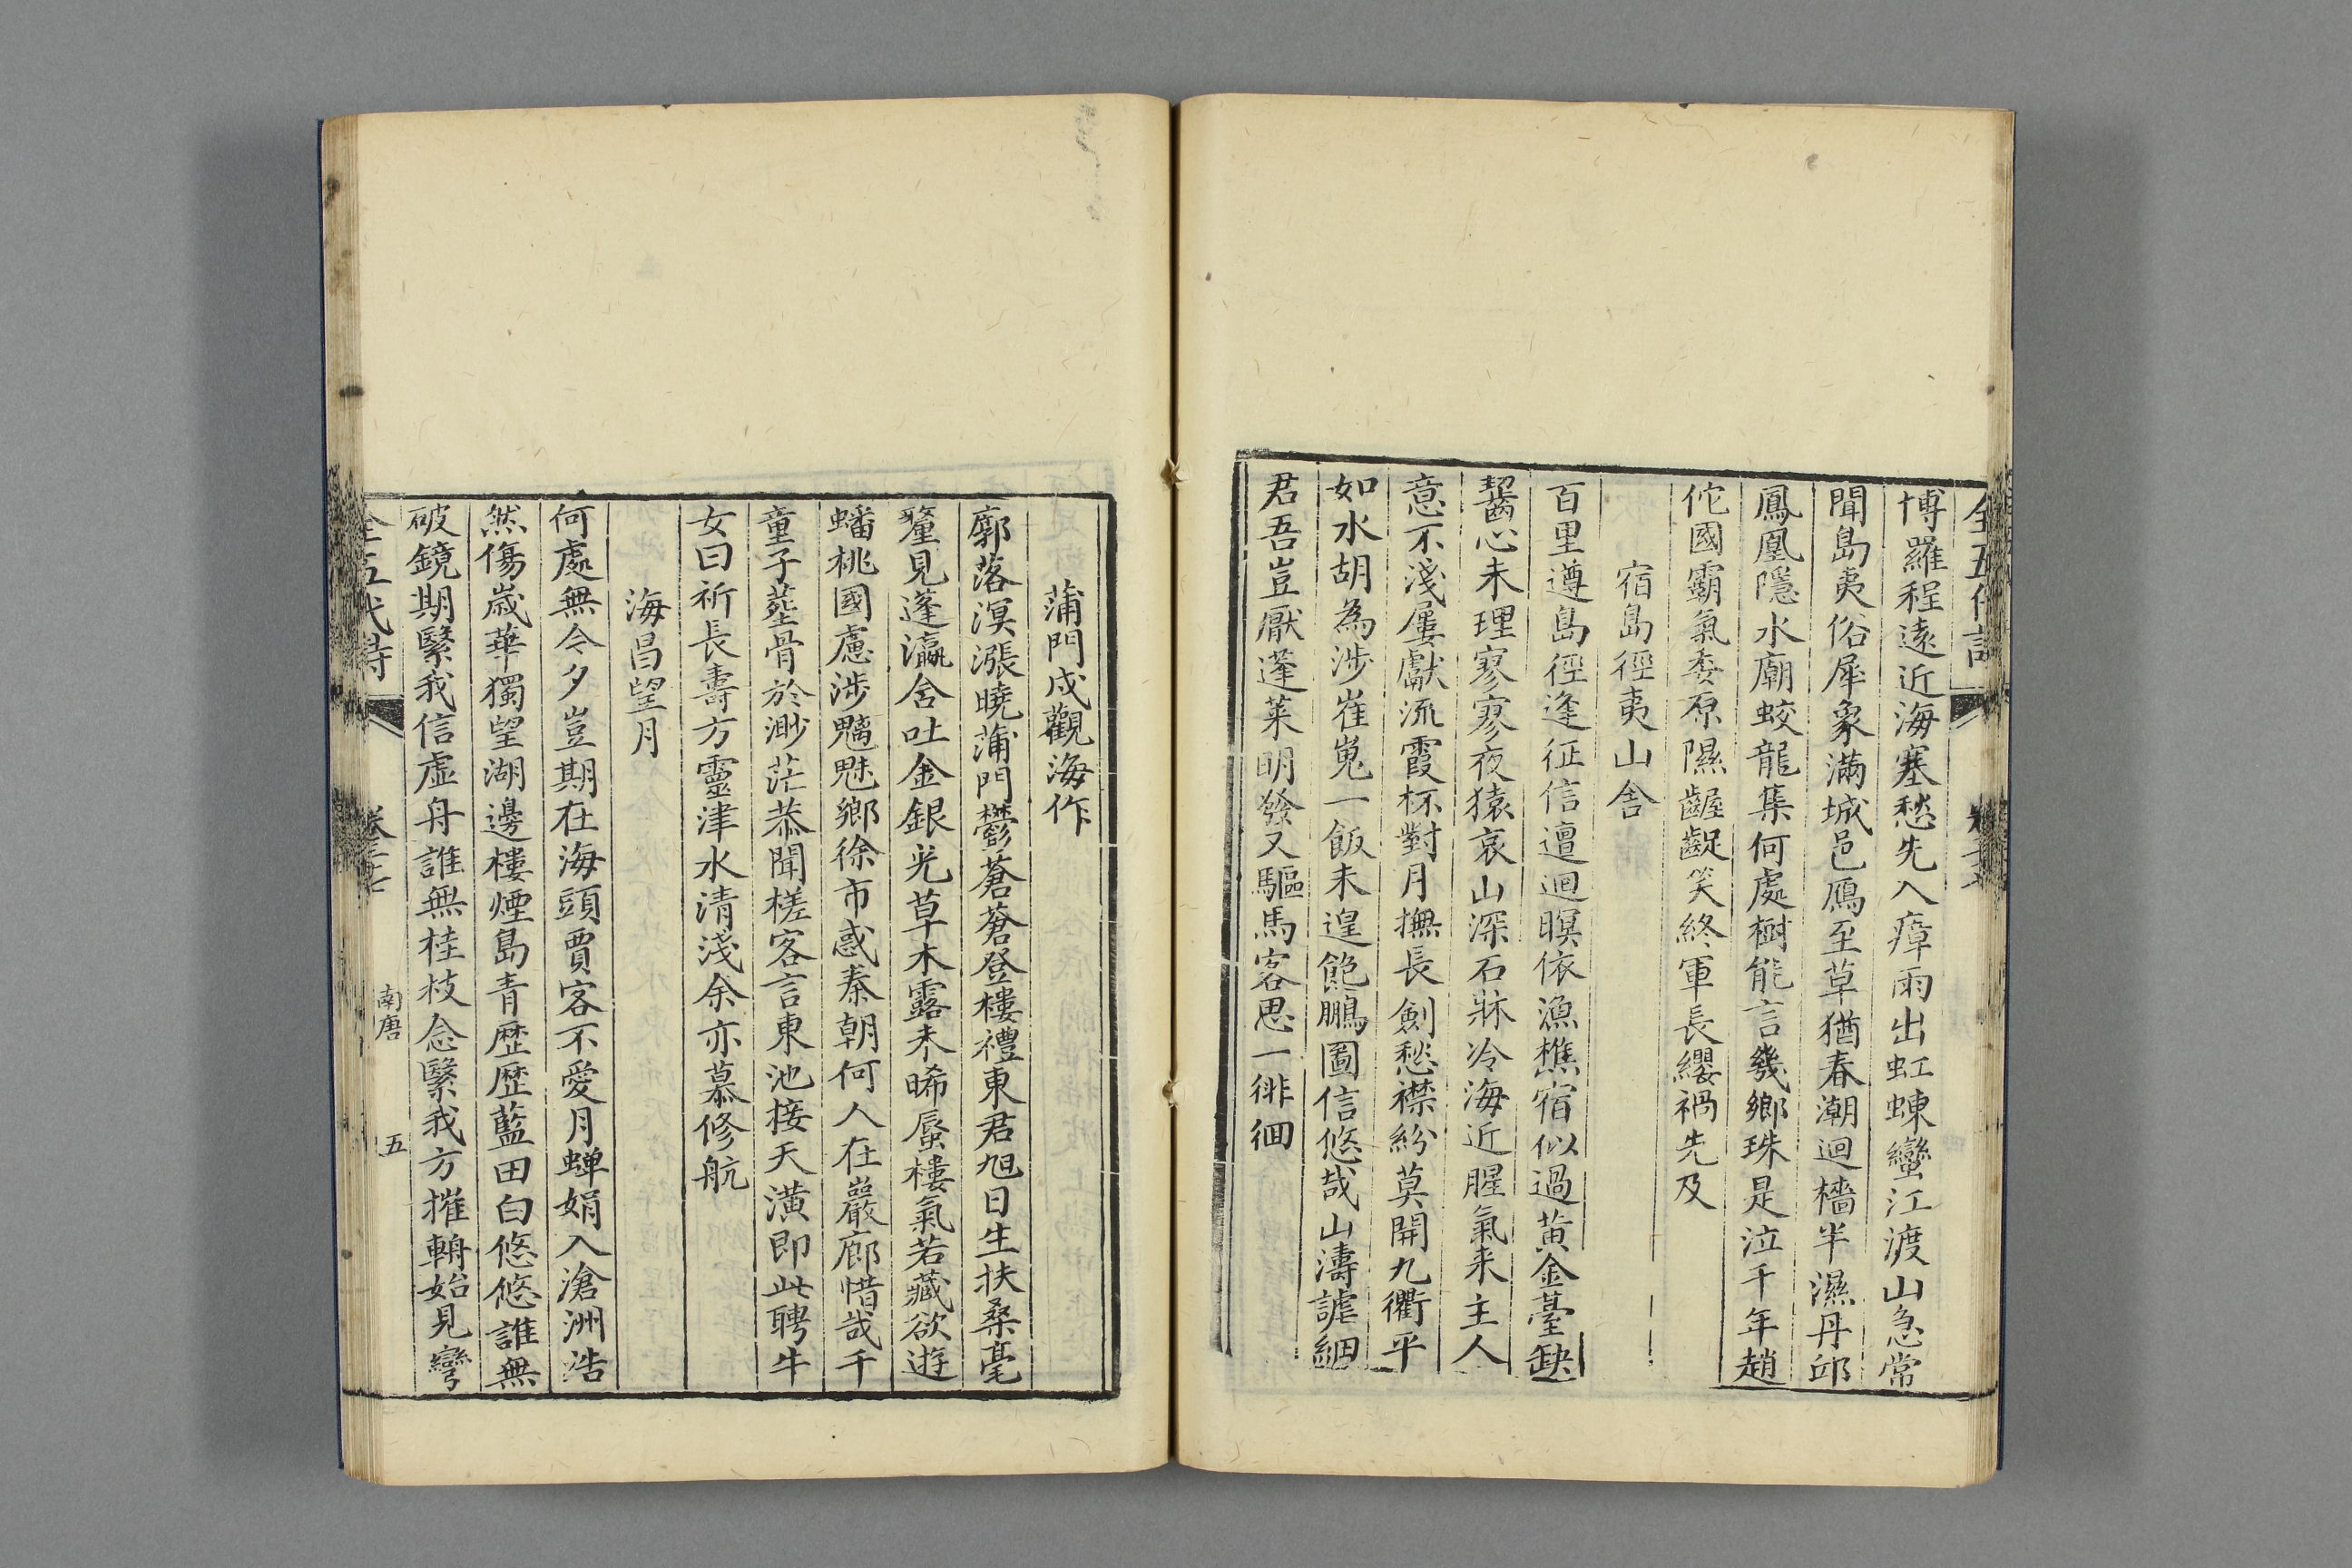 全五代詩
博羅程遠近海塞愁先入瘴雨出虹蝀蠻江渡山急常
聞島夷俗犀象滿城邑鴈至草猶春潮迴檣半濕丹邱
鳳凰隱水廟蛟龍集何處樹能言幾鄉珠是泣千年趙
佗國霸氣委原隰齷齪笑終軍長纓禍先及
宿島徑夷山舍
百里遵島徑逢征信邅迴暝依漁樵宿似過黃金臺缺
齧心未理寥寥夜猿哀山深石牀冷海近腥氣来主人
意不淺屢獻流霞杯對月撫長劍愁襟紛莫開九衢平
如水胡為涉崔嵬一飯未遑飽鵬圖信悠哉山濤謔細
君吾豈厭蓬萊明發又驅馬客思一徘徊
蒲門戍觀海作
廓落溟漲曉蒲門鬱蒼蒼登樓禮東君旭日生扶桑毫
釐見蓬瀛含吐金銀光草木露未晞蜃樓氣若藏欲遊
蟠桃國慮涉魑魅鄉徐市惑秦朝何人在巖廊惜哉千
童子葬骨於渺茫恭聞槎客言東池接天潢即此聘牛
女曰祈長壽方靈津水清淺余亦慕修航
海昌望月
何處無今夕豈期在海頭賈客不愛月蟬娟入滄洲浩
然傷歲華獨望湖邊樓煙島青歷歷藍田白悠悠誰無
破鏡期繄我信虛舟誰無桂枝念繄我方摧輈始見彎
全五代詩
南唐
五